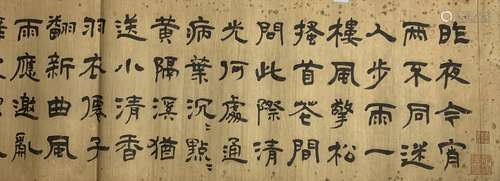 昨夜今宵
兩不同迷
人步雨一
樓風擎松
搔首花間
問此際清
光何處通
病葉沉點
黄隔溪猶
送小清香
羽衣僊子
翻新曲風
雨應邀亂